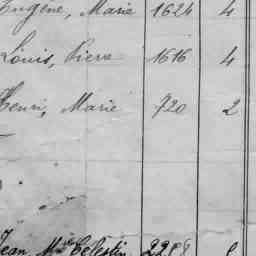 Eugène, Marie 1624 4
Louis, Pierre 1616 4
Henri, Marie 720 2
Jean, Mie Célestin 2298